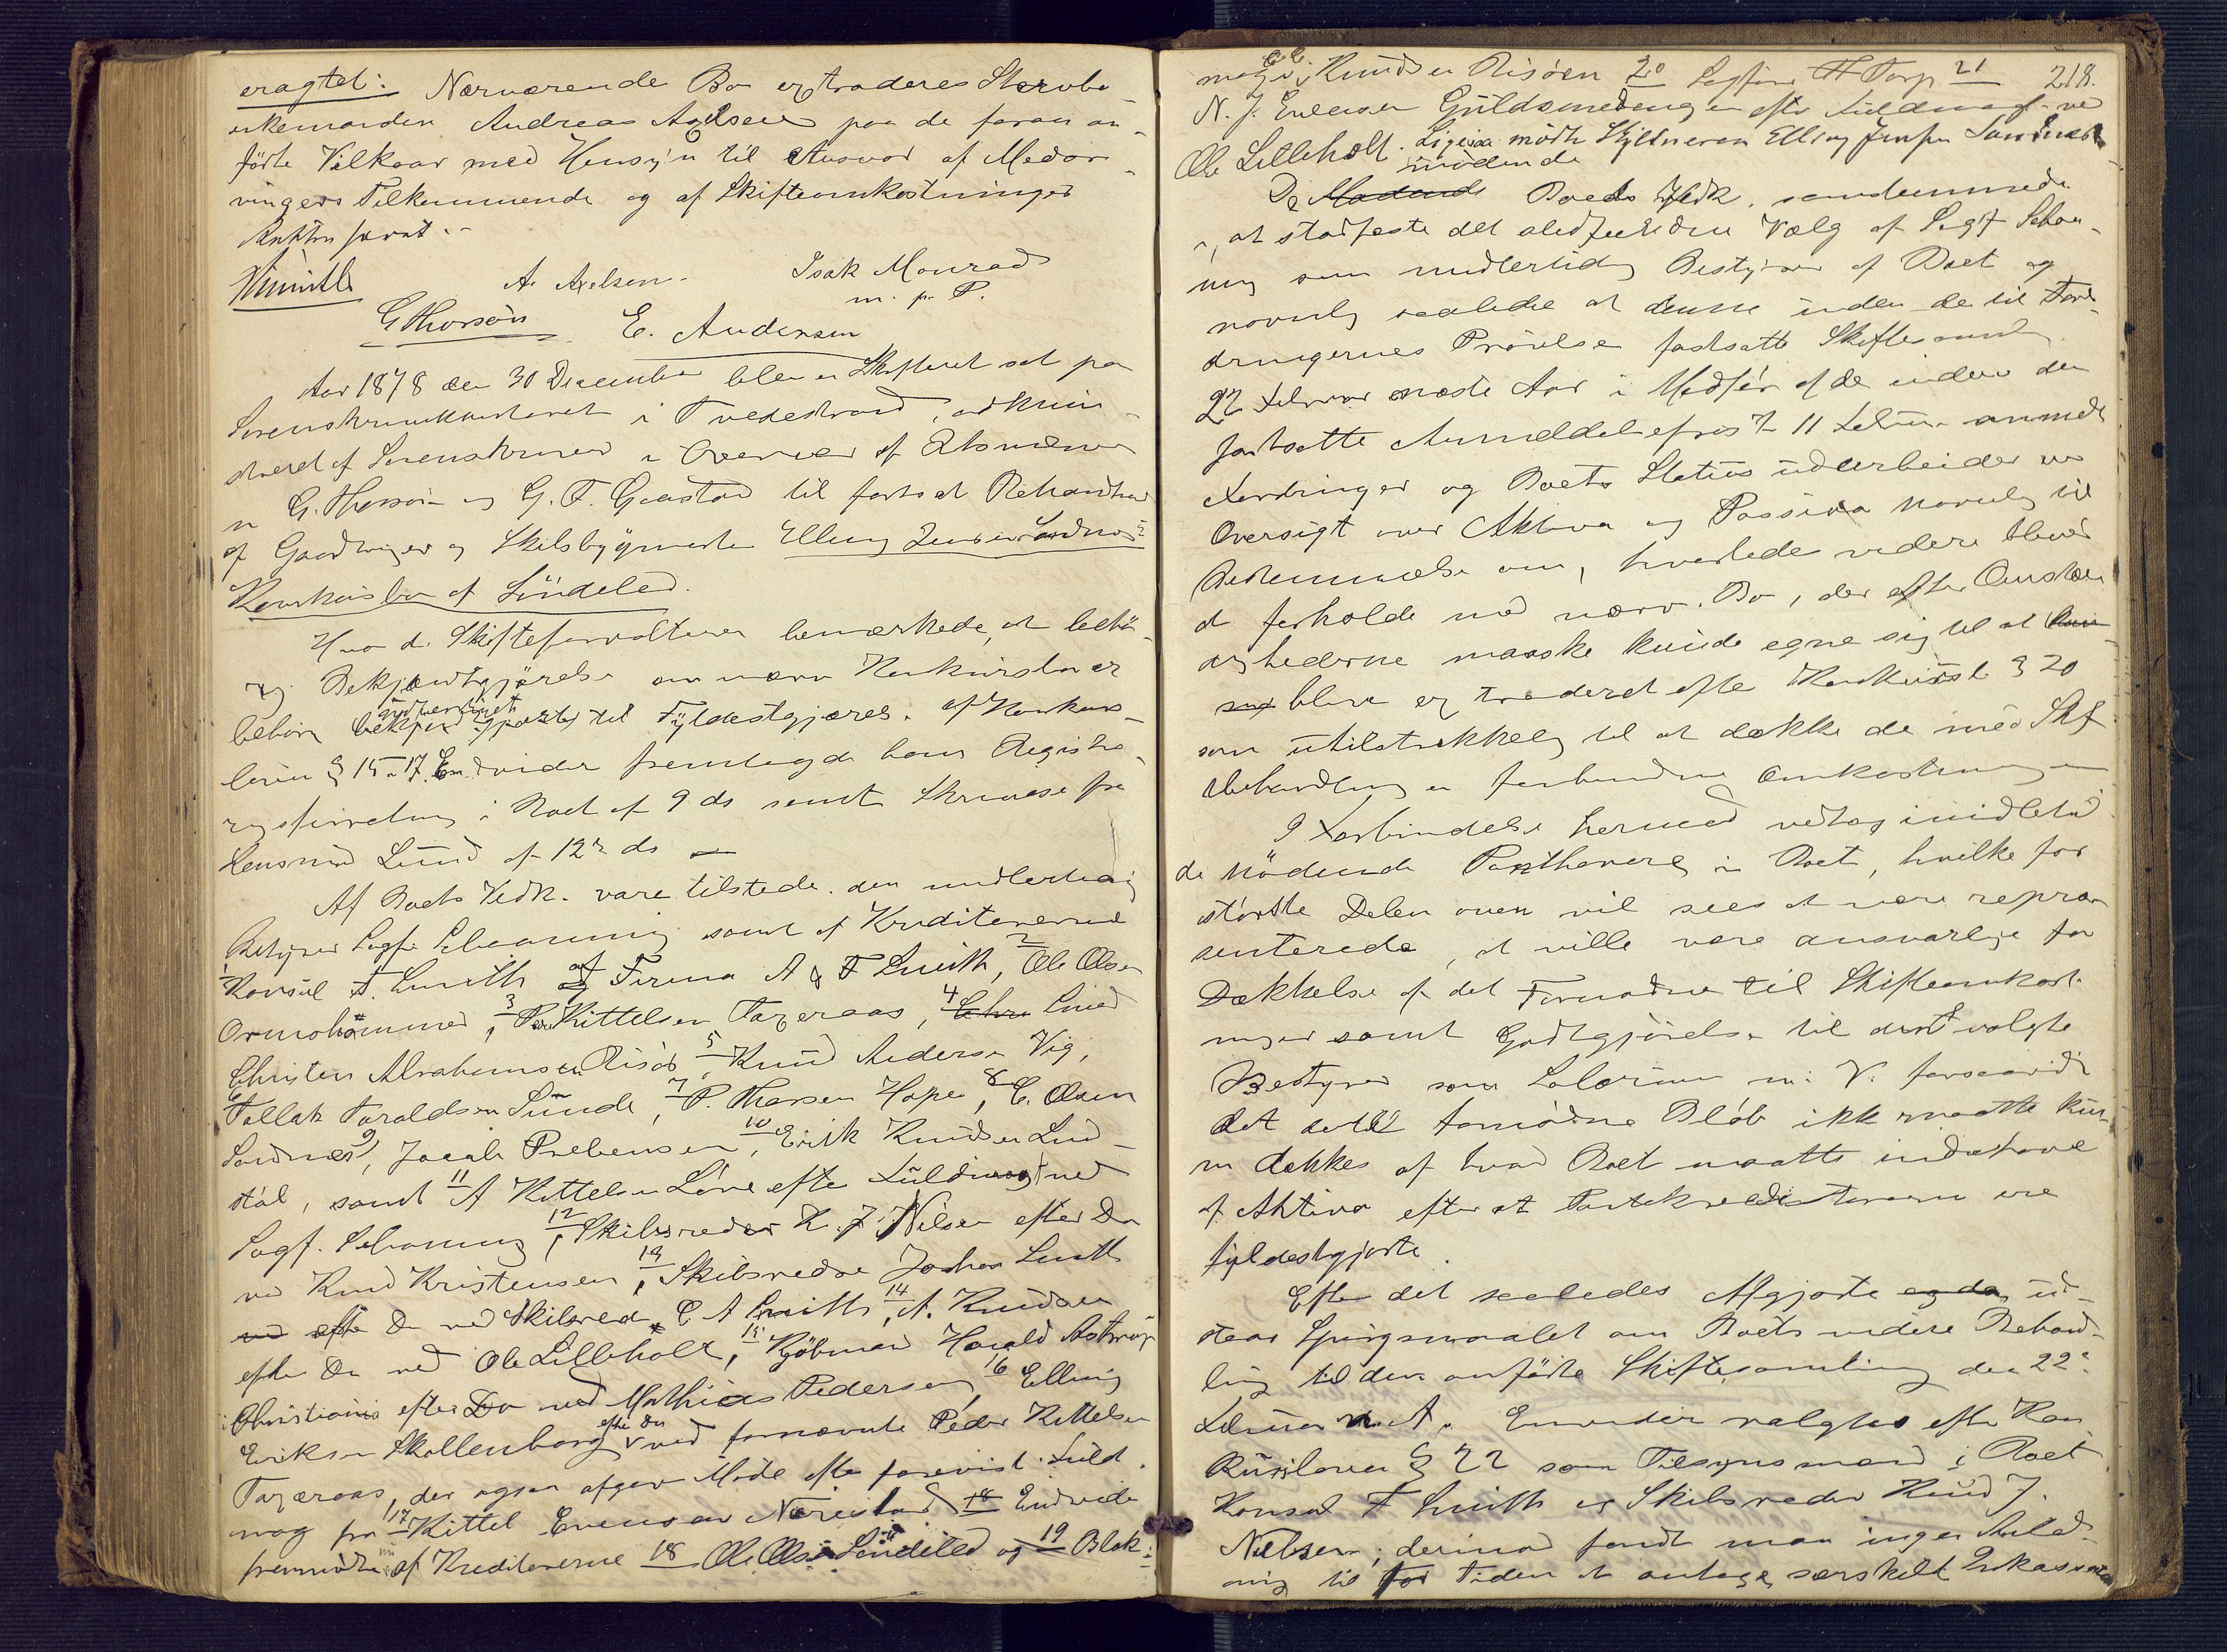 eragtet: Nærværende Bo extraderes Stervbo-
enkemanden Andreas Axelsen paa de foran an-
førte Vilkaar med Hensyn til Ansvar af Medar-
vingers Tilkommende og af Skifteomkostninger
Retten hævet.
A. Axelsen. Isak Monrad
m. p. P.
G Thorsøn E. Andersen
Aar 1878 den 30 December blev Skifteret sat paa
Sorenskriverkontoret i Tvedestrand, admini-
streret af Sorenskriveren i Overvær af Retsmændene
G. Thorsøn og G. F. Graastad til fortsat Behandling
af Gaardbruger og Skibsbygmester Elling Jensen Sandnæs's
Konkursbo af Söndeled.
Hvor da Skifteforvalteren bemærkede, at behö-
rig Bekjendtgjørelse om nærv Konkursbo er
indrykket til Fyldestgjørelse af Konkurs-
loven § 15 - 17. Endvidere fremlagde han Registe-
ringsforretning i Boet af 9 ds samt Skrivelse fra
Lensmd Lund af 12te ds
Af Boets Vedk. vare tilstede den midlertidig
Bestyrer Sagfr Schanning samt af Kreditorerne
1 Konsul F. Smith af Firma A & F Smith, 2 Ole Olsen
Ormohammer, 3 Peder Kittelsen Faxeraas, 4 Chr Smed
Christen Abrahamsen Risør, 5 Knud Andersen Vig,
6 Tallak Taraldsen Sunde, 7 P. Thorsen Hope, 8 C. Olsen
Sandnæs, 9 Jacob Prebensen, 10 Erik Knudsen Lind-
stöl, samt 11 A Kittelsen Löve efter Fuldmagt ved
Sagf. Schanning, 12 Skibsreder K. J. Nilsen efter Do
ved Knud Kristensen, 13 Skibsreder Jochen Smith
ved efter Do ved Skibsreder C A Smith, 14 A. Knudsen
efter Do ved Ole Lilleholt, 15 Kjöbmand Harald Astrup
Christiania efter Do ved Mathias Pedersen, 16 Elling
Eriksen Skollenborg efter Do ved fornævnte Peder Kittelsen
Faxeraas, der ogsaa afgav Møde efter forevist Fuld-
mag fra 17 Kittel Evensen Nærestad 18 Endvidere
fremmødte af Kreditorerne 18 Ole Olsen Söndeled og 19 Blok-
mager Knudsen Risöen 20 Sagfører H Torp 21 218.
N. J. Guldsmed efter Fuldmagt ved
Ole Lilleholt. Ligesaa mödte Skyldneren Elling Jensen Sandnæs
mödende
De Mødende Boets Vedk. samstemmede
i, at stadfæste det stedfundne Valg af Sagf Schan-
ning som midlertidig Bestyrer af Boet og
navnlig saaledes at denne inden de til For-
dringernes Prövelse fastsatte Skiftesamling
22 Februar næste Aar i Medfør af de inden den
fastsatte Anmeldelsesfrist 11 Februar anmeldte
Fordringer og Boets Status udarbeider en
Oversigt over Aktiva og Passiva navnlig til
Bestemmelse om, hvorlede videre bliver
at forholde med nærv. Bo, der efter Omstæn-
dighederne maaske kunde egne sig til at
blive extraderet efter Konkursl § 20
som utilstrækkelig til at dække de med Skf
behandlingen forbundne Omkostninger
I Forbindelse hermed vedtog imidlertid
de mödende Panthavere i Boet, hvilke for
störste Delen oven vil sees at være repræ-
senterede, at ville være ansvarlige for
Dækkelse af det Fornødne til Skifteomkost-
ninger samt Godtgjörelse til den valgte
Bestyrer som Salærium m. V. forsaavidt
det dertil fornødne Beløb ikke maatte kun-
ne dækkes af hvad Boet maatte indehave
af Aktiva efter at Pantekreditorerne ere
fyldestgjorte.
Efter det saaledes Afgjorte ud-
staar Spörgsmaalet om Boets videre Behand-
ling til den anførte Skiftesamling den 22de
Februar n. A. Enividere valgtes efter Kon-
kursloven § 22 som Tilsynsmænd i Boet
Konsul F Smith og Skibsreder Knud J.
Nielsen; derimod fandt man ingen Anled-
ning til for Tiden at antage særskilt Inkassator